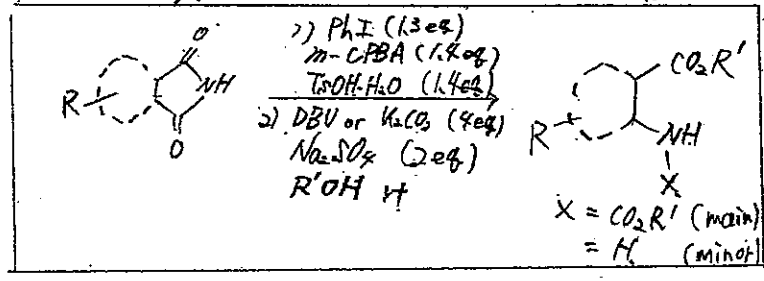 O
NH
O
R
1) PhI (1.3 eq)
m-CPBA (1.4 eq)
TsOH·H₂O (1.4 eq)
2) DBU or K₂CO₃ (4 eq)
Na₂SO₄ (2 eq)
R'OH rt
CO₂R'
R
NH
X
X = CO₂R' (main)
= H (minor)